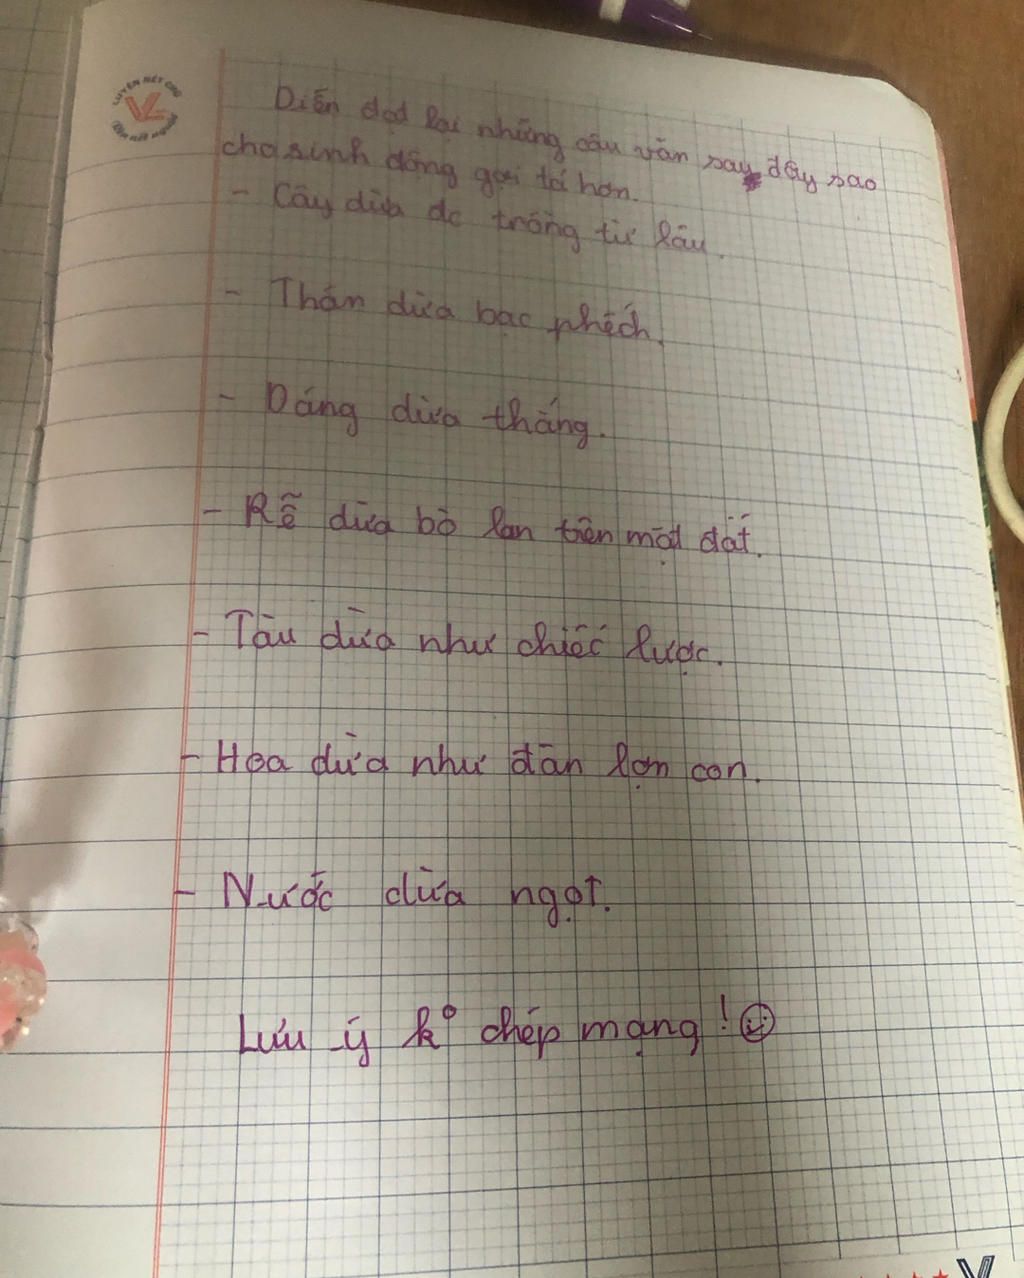 LUYỆN NÉT CHỮ
VL
Rèn nết người
Diễn đạt lại những câu văn say đây sao
cho sinh động gợi tả hơn.
- Cây dừa dc trồng từ lâu.
- Thân dừa bạc phếch.
- Dáng dừa thẳng.
- Rễ dừa bò lan trên mặt đất.
- Tàu dừa như chiếc lược.
- Hoa dừa như đàn lợn con.
- Nước dừa ngọt.
Lưu ý kº chép mạng! ☺
V